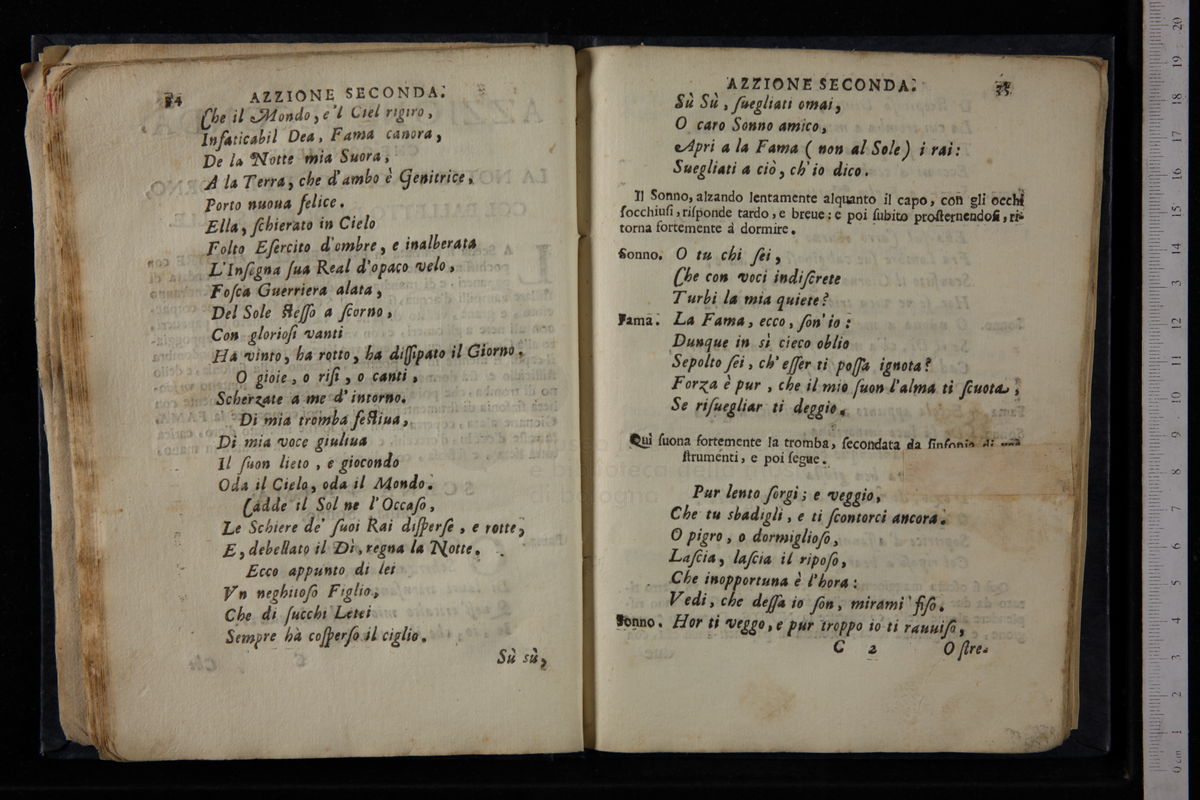 34 AZZIONE SECONDA.
Che il Mondo, e'l Ciel rigiro,
Inſaticabil Dea, Fama canora,
De la Notte mia Suora,
A la Terra, che d'ambo è Genitrice,
Porto nuoua felice.
Ella, ſchierato in Cielo
Folto Eſercito d'ombre, e inalberata
L'Inſegna ſua Real d'opaco velo,
Foſca Guerriera alata,
Del Sole ſteſſo a ſcorno,
Con glorioſi vanti
Ha vinto, ha rotto, ha diſſipato il Giorno.
O gioie, o riſi, o canti,
Scherzate a me d'intorno.
Di mia tromba feſtiua,
Di mia voce giuliua
Il ſuon lieto, e giocondo
Oda il Cielo, oda il Mondo.
Cadde il Sol ne l'Occaſo,
Le Schiere de' ſuoi Rai diſperſe, e rotte,
E, debellato il Dì, regna la Notte.
Ecco appunto di lei
Vn neghitoſo Figlio,
Che di ſucchi Letei
Sempre hà coſperſo il ciglio.
Sù sù,
AZZIONE SECONDA. 35
Sù Sù, ſuegliati omai,
O caro Sonno amico,
Apri a la Fama (non al Sole) i rai:
Suegliati a ciò, ch'io dico.
Il Sonno, alzando lentamente alquanto il capo, con gli occhi
ſocchiuſi, riſponde tardo, e breue: e poi ſubito proſternendoſi, ri-
torna fortemente à dormire.
Sonno. O tu chi ſei,
Che con voci indiſcrete
Turbi la mia quiete?
Fama. La Fama, ecco, ſon'io:
Dunque in sì cieco oblio
Sepolto ſei, ch'eſſer ti poſſa ignota?
Forza è pur, che il mio ſuon l'alma ti ſcuota,
Se riſuegliar ti deggio.
Quì ſuona fortemente la tromba, ſecondata da ſinfonia di
ſtrumenti, e poi ſegue.
Pur lento ſorgi; e veggio,
Che tu sbadigli, e ti ſcontorci ancora.
O pigro, o dormiglioſo,
Laſcia, laſcia il ripoſo,
Che inopportuna è l'hora:
Vedi, che deſſa io ſon, mirami fiſo.
Sonno. Hor ti veggo, e pur troppo io ti rauuiſo,
C 2 O ſtre-